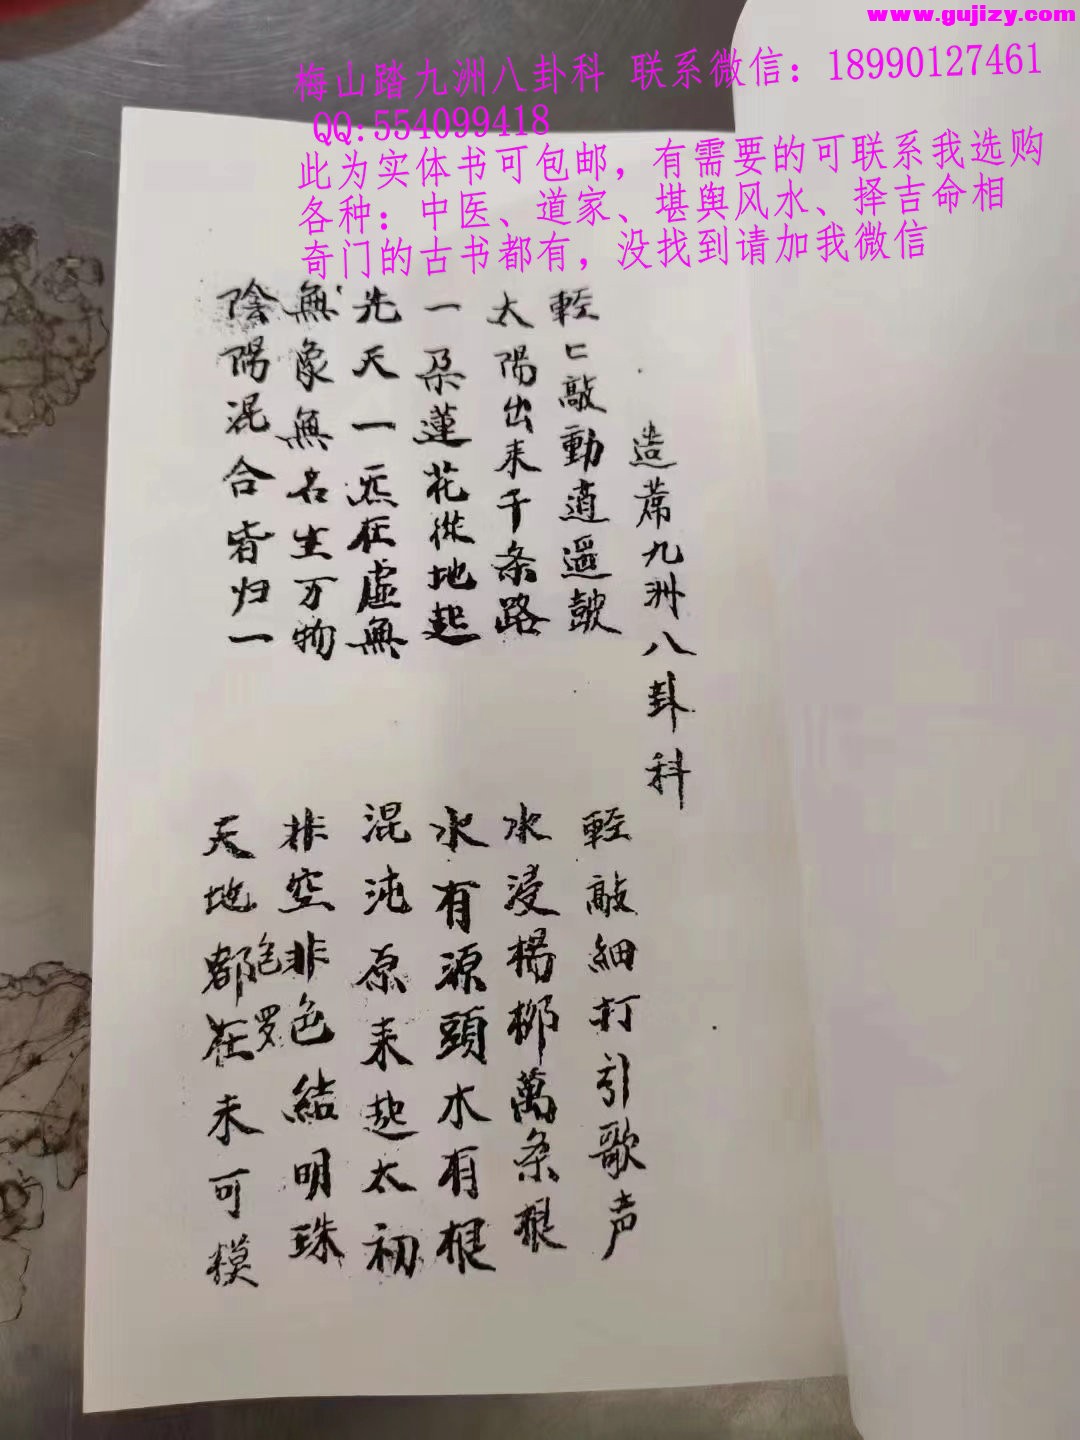 www.gujizy.com
梅山踏九洲八卦科 联系微信：18990127461
QQ:554099418
此为实体书可包邮，有需要的可联系我选购
各种：中医、道家、堪舆风水、择吉命相
奇门的古书都有，没找到请加我微信
造蓆九洲八卦科
輕〻敲動逍遥皷
輕敲細打引歌声
太陽出来千条路
水浸楊柳萬条根
一朶蓮花從地起
水有源頭木有根
先天一炁在虚無
混沌原来起太初
無象無名生万物
非空非色結明珠
陰陽混合皆归一
天地都在未可模
包罗